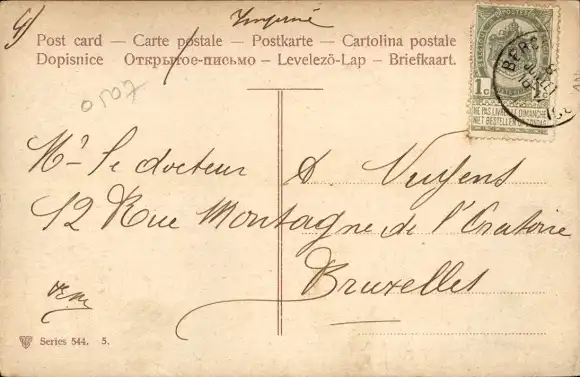 Imprimé
Post card — Carte postale — Postkarte — Cartolina postale
Dopisnice — Открытое-письмо — Levelezö-Lap — Briefkaart.
1c
NE PAS LIVRER LE DIMANCHE
NIET BESTELLEN OP ZONDAG
Mr le docteur A. Nuyens
12 Rue Montagne de l'Oratoire
Bruxelles
Series 544. 5.